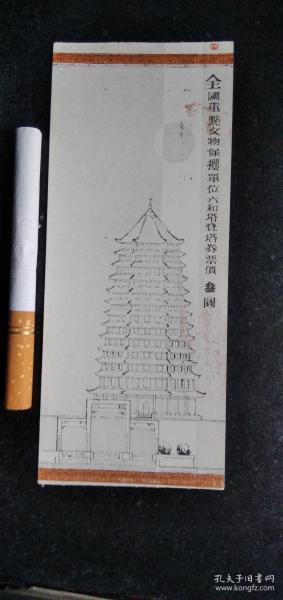 全國重點文物保護單位六和塔登塔券票價 叁圓
孔夫子旧书网
book.kongfz.com